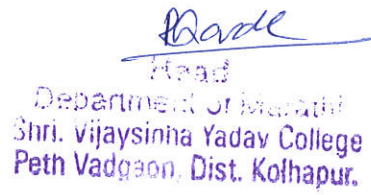 Head
Department of Marathi
Shri. Vijaysinha Yadav College
Peth Vadgaon, Dist. Kolhapur.